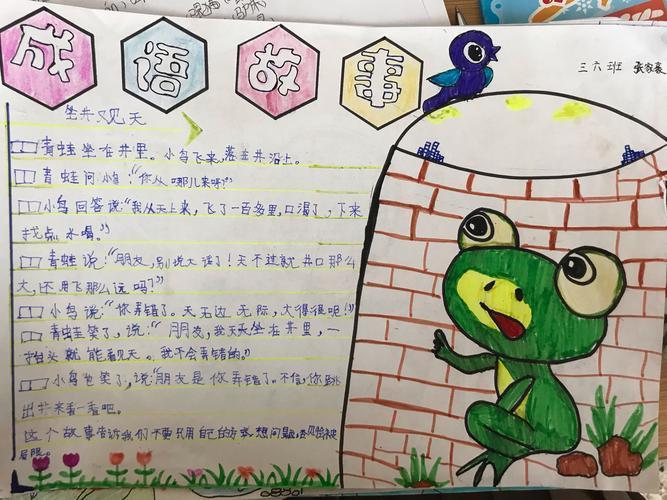 成语故事
三六班 张家豪
坐井观天
青蛙坐在井里。小鸟飞来,落在井沿上。
青蛙问小鸟:“你从哪儿来呀?”
小鸟回答说:“我从天上来,飞了一百多里,口渴了,下来
找点水喝。”
青蛙说:“朋友,别说大话了!天不过就井口那么
大,还用飞那么远吗?”
小鸟说:“你弄错了。天无边无际,大得很呢!”
青蛙笑了,说:“朋友,我天天坐在井里,一
抬头就能看见天。我不会弄错的。”
小鸟也笑了,说:“朋友是你弄错了。不信,你跳
出井来看一看吧。
这个故事告诉我们不要只用自己的方式想问题
局限。